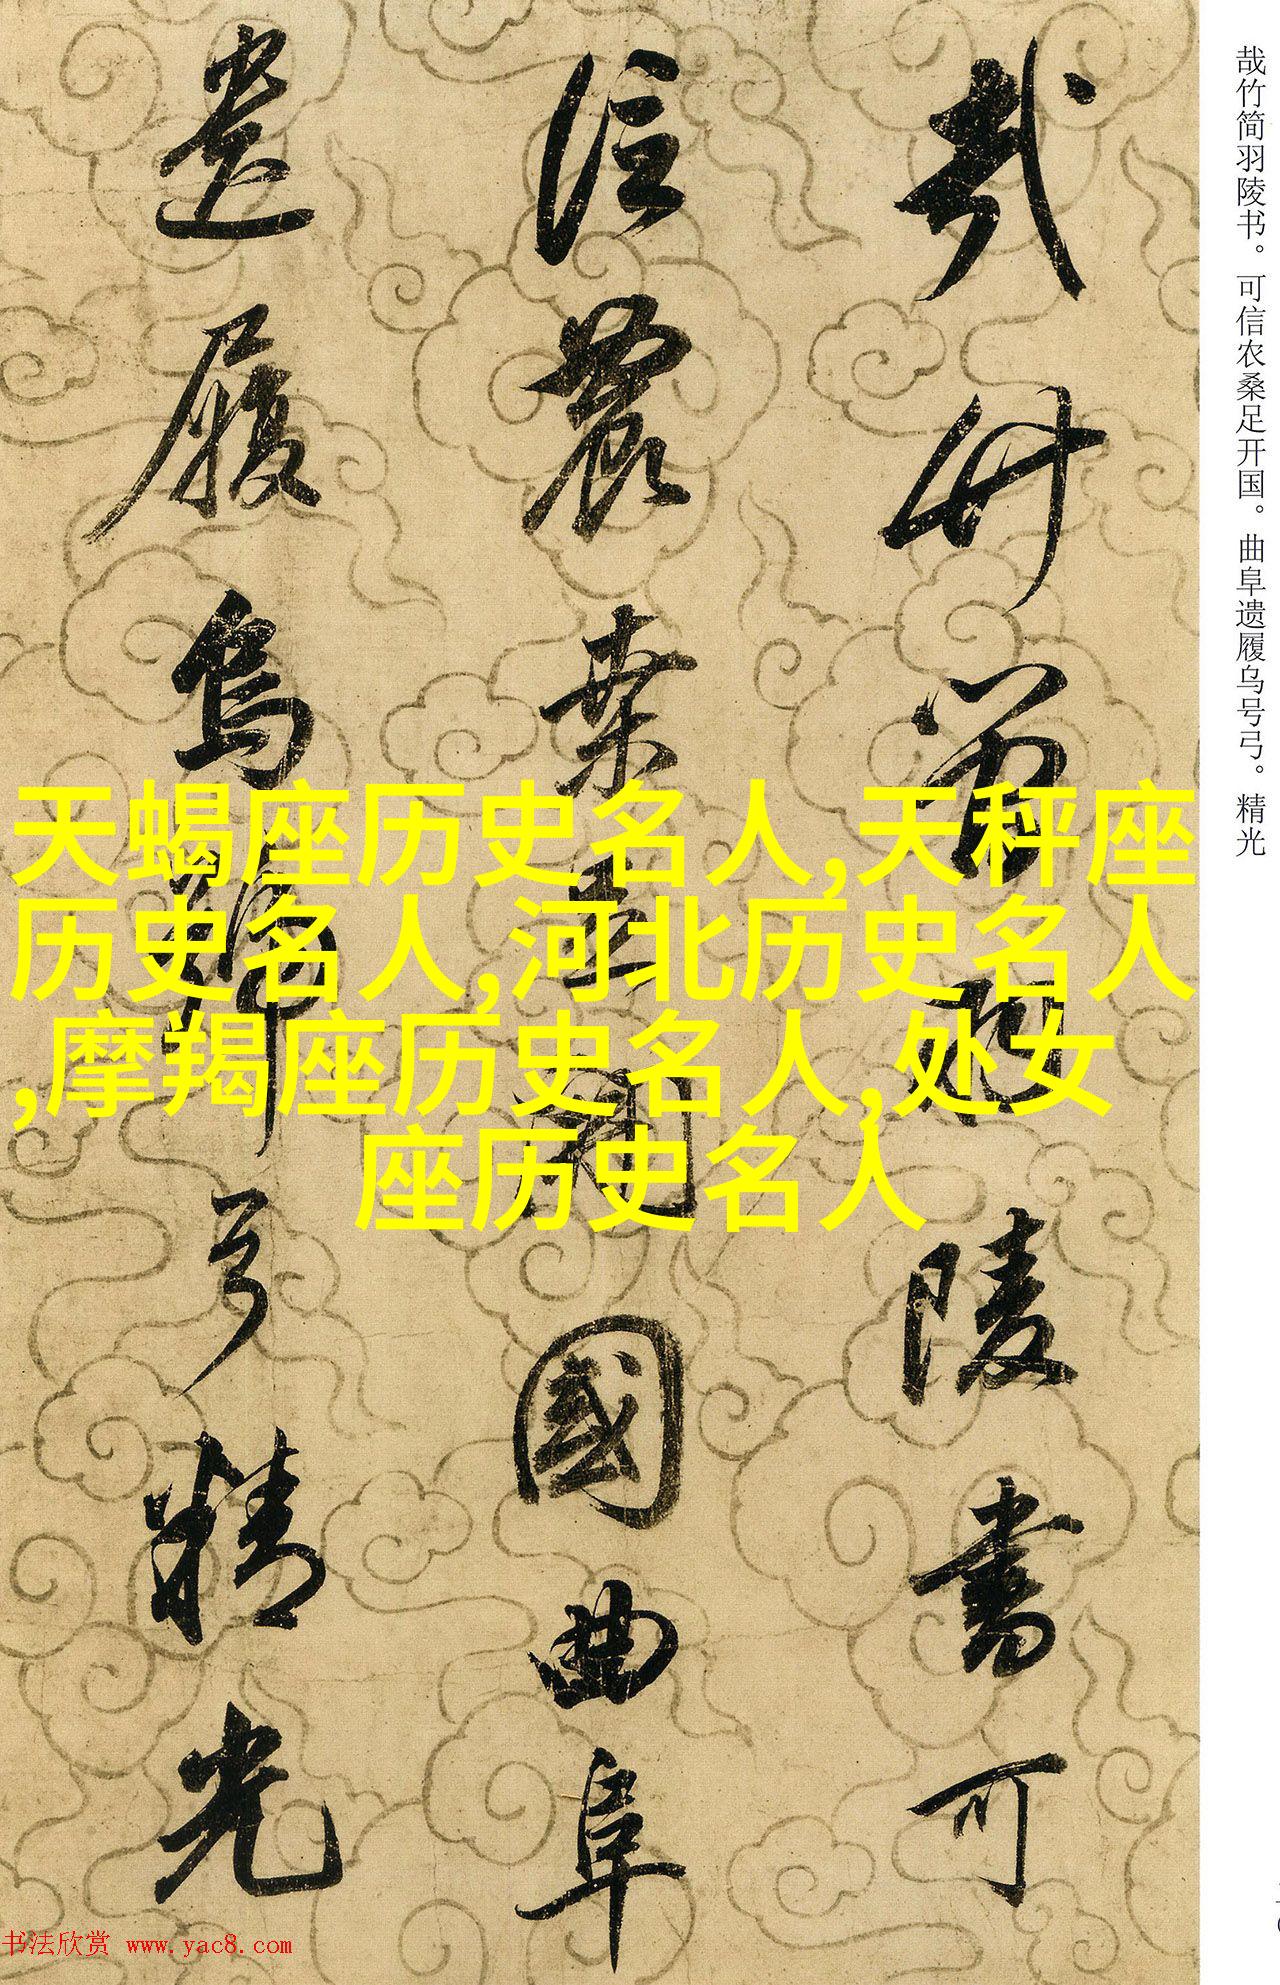 哉竹简羽陵书。可信农桑足开国。曲阜遗履乌号弓。精光
哉竹簡羽陵書可
信農桑足開國曲阜
遺履烏號弓精光
天蝎座历史名人,天秤座
历史名人,河北历史名人
,摩羯座历史名人,处女
座历史名人
书法欣赏 www.yac8.com